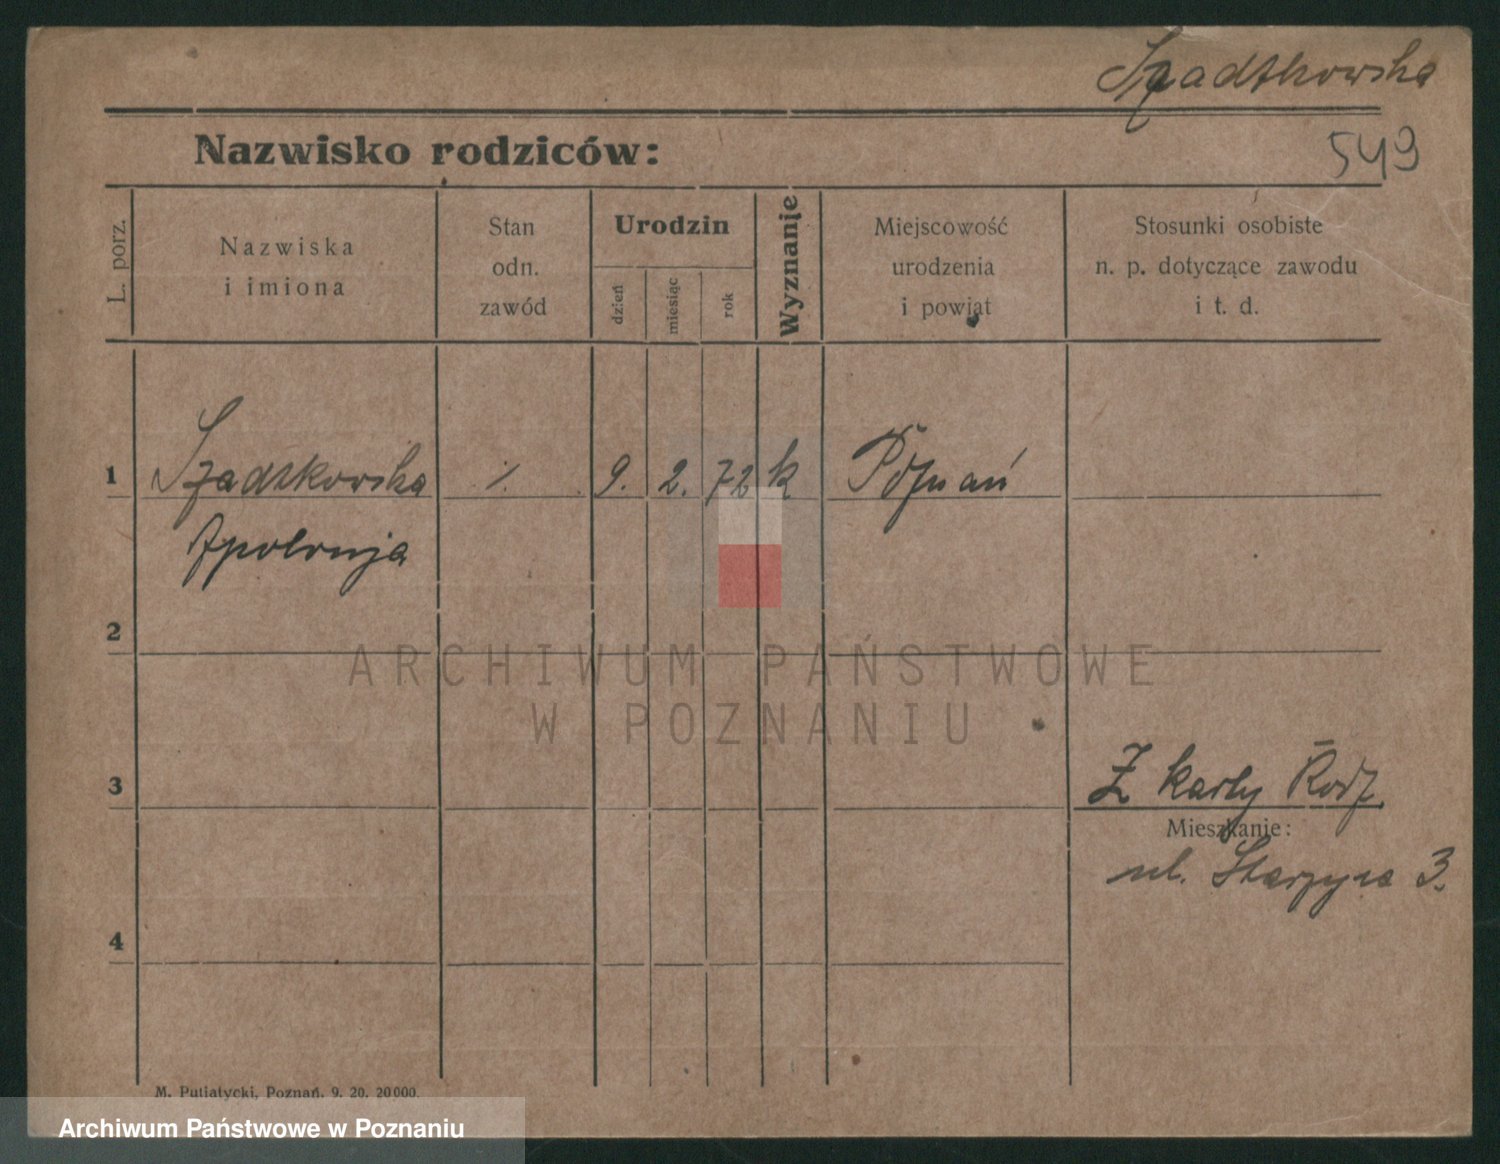 Szadtkowska
Nazwisko rodziców:
549
L. porz.
Nazwiska
i imiona
Stan
odn.
zawód
Urodzin
dzień
miesiąc
rok
Wyznanie
Miejscowość
urodzenia
i powiat
Stosunki osobiste
n. p. dotyczące zawodu
i t. d.
1 Szadtkowska ·/. 9. 2. 72 k Poznań
Apolonja
2
ARCHIWUM PAŃSTWOWE
W POZNANIU
3
Z karty Rodz.
Mieszkanie:
ul. 3.
4
M. Putiatycki, Poznań. 9. 20. 20000.
Archiwum Państwowe w Poznaniu